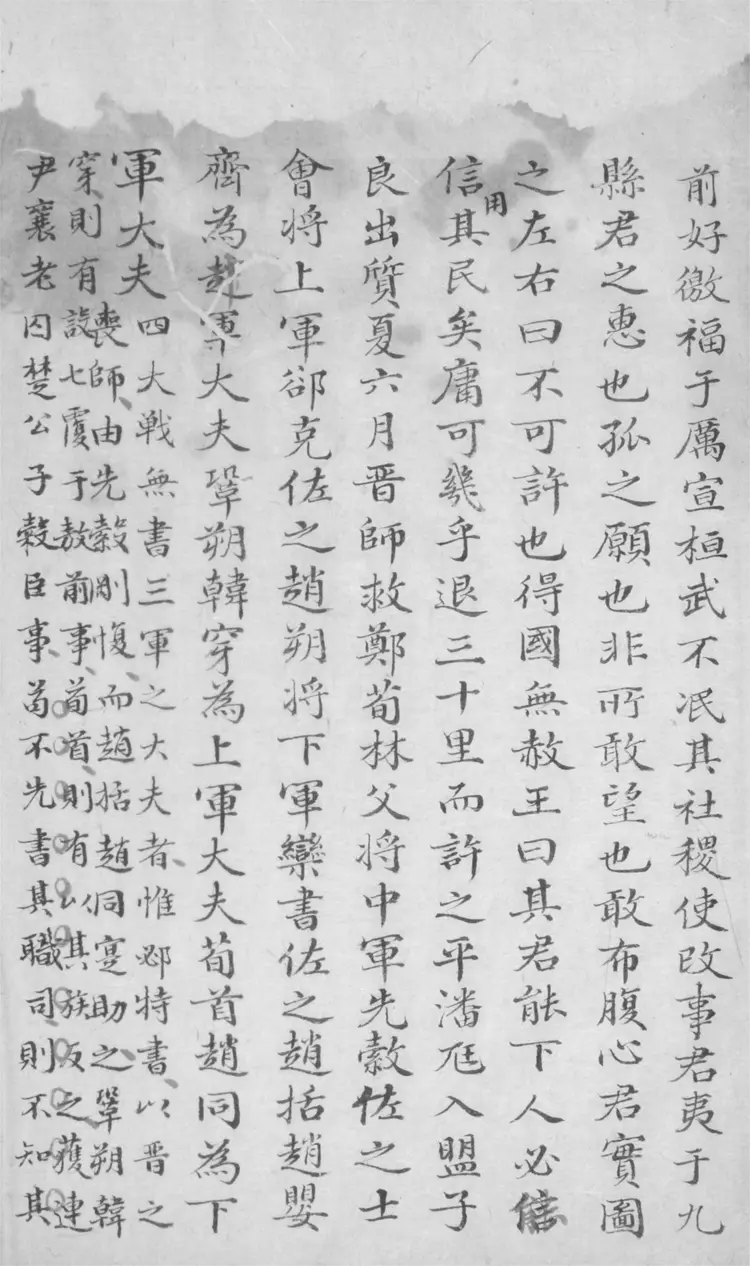 前好徼福于厲宣桓武不泯其社稷使改事君夷于九
縣君之惠也孤之願也非所敢望也敢布腹心君實圖
之左右曰不可許也得國無赦王曰其君能下人必信
信用其民矣庸可幾乎退三十里而許之平潘尫入盟子
良出質夏六月晉師救鄭荀林父將中軍先縠佐之士
會將上軍郤克佐之趙朔將下軍欒書佐之趙括趙嬰
齊為趙軍大夫鞏朔韓穿為上軍大夫荀首趙同為下
軍大夫四大戰無書三軍之大夫者惟邲特書以晉之
喪師由先縠剛愎而趙括趙同寔助之鞏朔韓
穿則有設七覆于敖前事荀首則有以其族反之獲連
尹襄老囚楚公子穀臣事苟不先書其職司則不知其